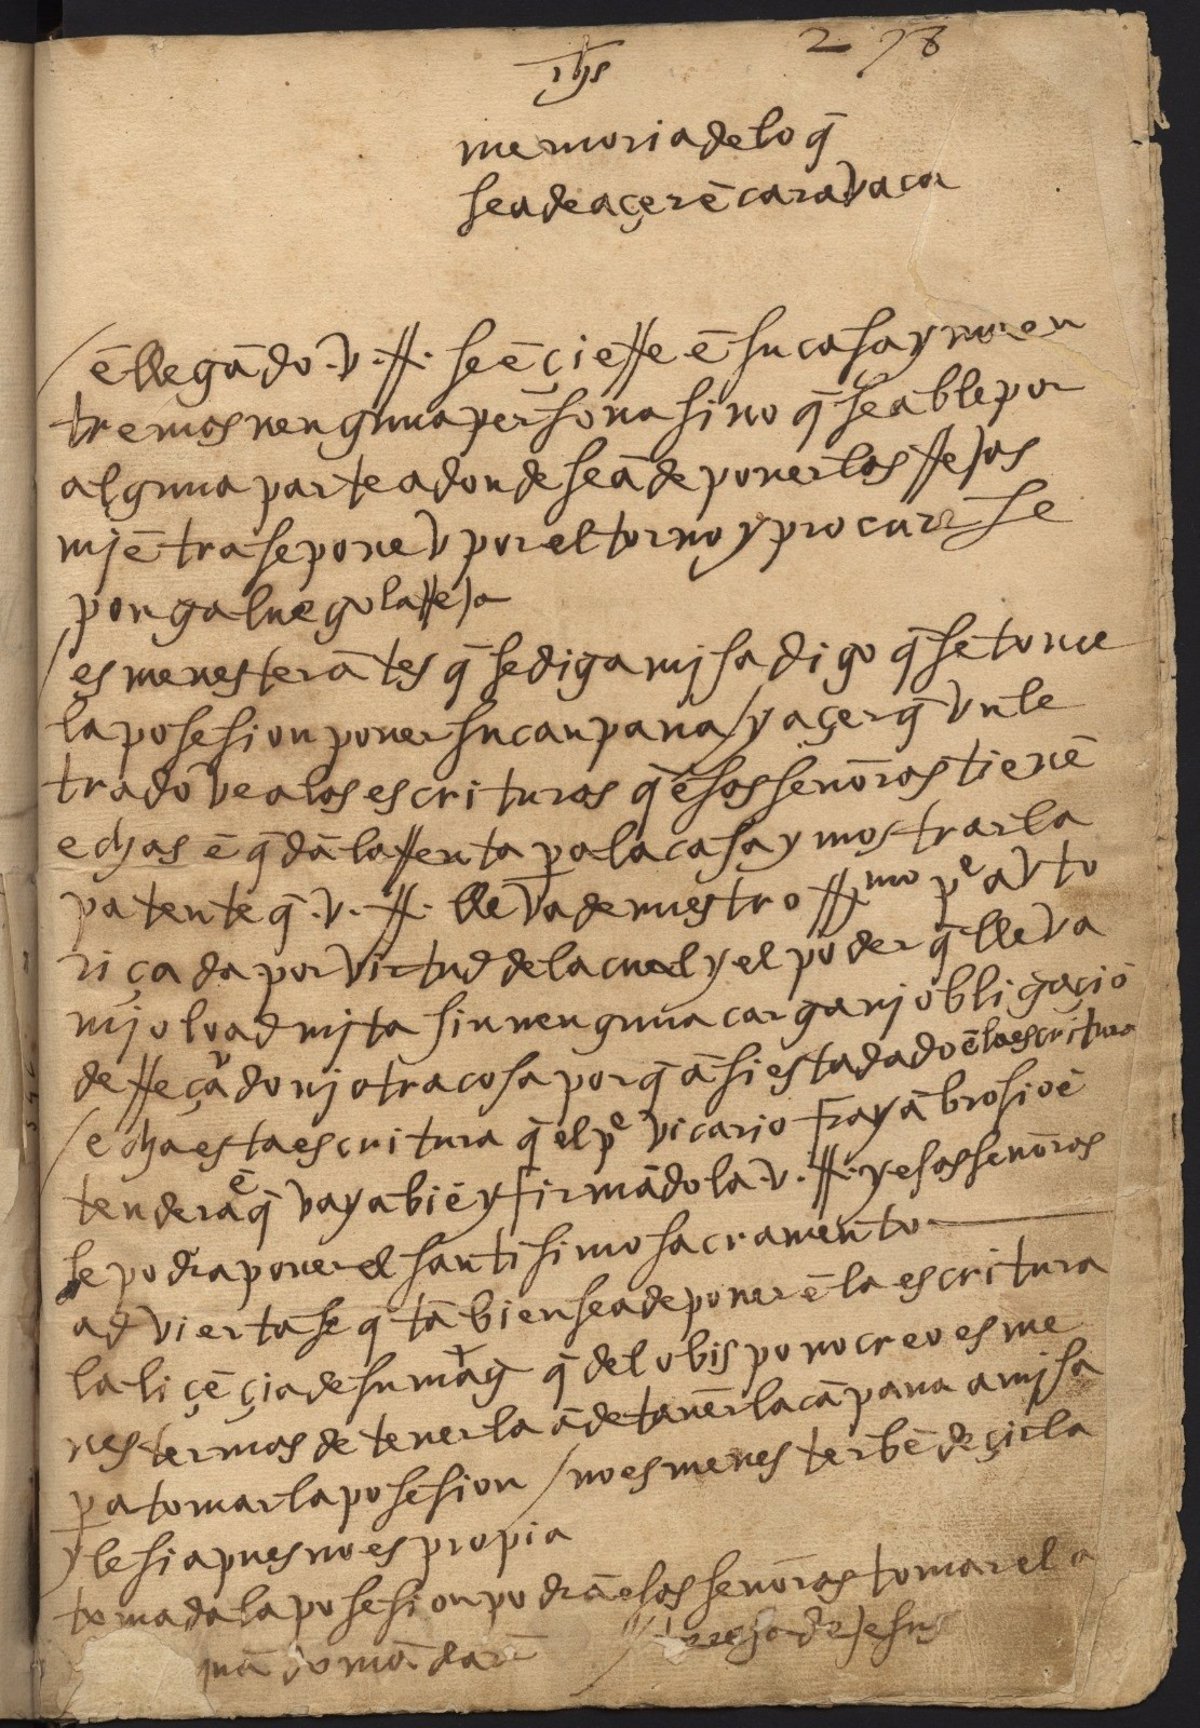 278
ihs
memoria de lo q̄
se a de açer ē caravaca
/ ē llegādo .v. R. se ēçieRe ē su casa y no en
tre mas nenguna persona sino q̄ se able por
alguna parte adonde se ā de poner las Rejas
mjētra se pone v por el torno y procurese
ponga luego la Reja
/ es menester ātes q̄ se diga mjsa digo q̄ se tome
la posesion poner su canpana / y açer q̄ vn le
trado vea las escrituras q̄ esas senōras tienē
echas ē q̄ dā la Renta pa la casa y mostrar la
patente q̄ .v. R. lleva de nuestro Rmo pe avto
riçada por virtud de la cual y el poder q̄ lleva
mjo lo admjta sin nenguna carga nj obligaçiō
de Reçado nj otra cosa porq̄ āsi esta dado ē la escritura
/ echa esta escritura q̄ el pe vicario fray ābrosio ē
tendera ē q̄ vaya biē y firmādola .v. R. y esas senōras
se podra poner el santisimo sacramento
adviertase q̄ tābien se a de poner ē la escritura
la liçēçia de su mag q̄ del obispo no creo es me
nester mas de tenerla ā de taner la cāpana a mjsa
pa tomar la posesion / no es menester bēdeçir la
yglesia pues no es propia
tomada la posesion podrā esas senōras tomar el a
mādomādarē / teresa de jesus